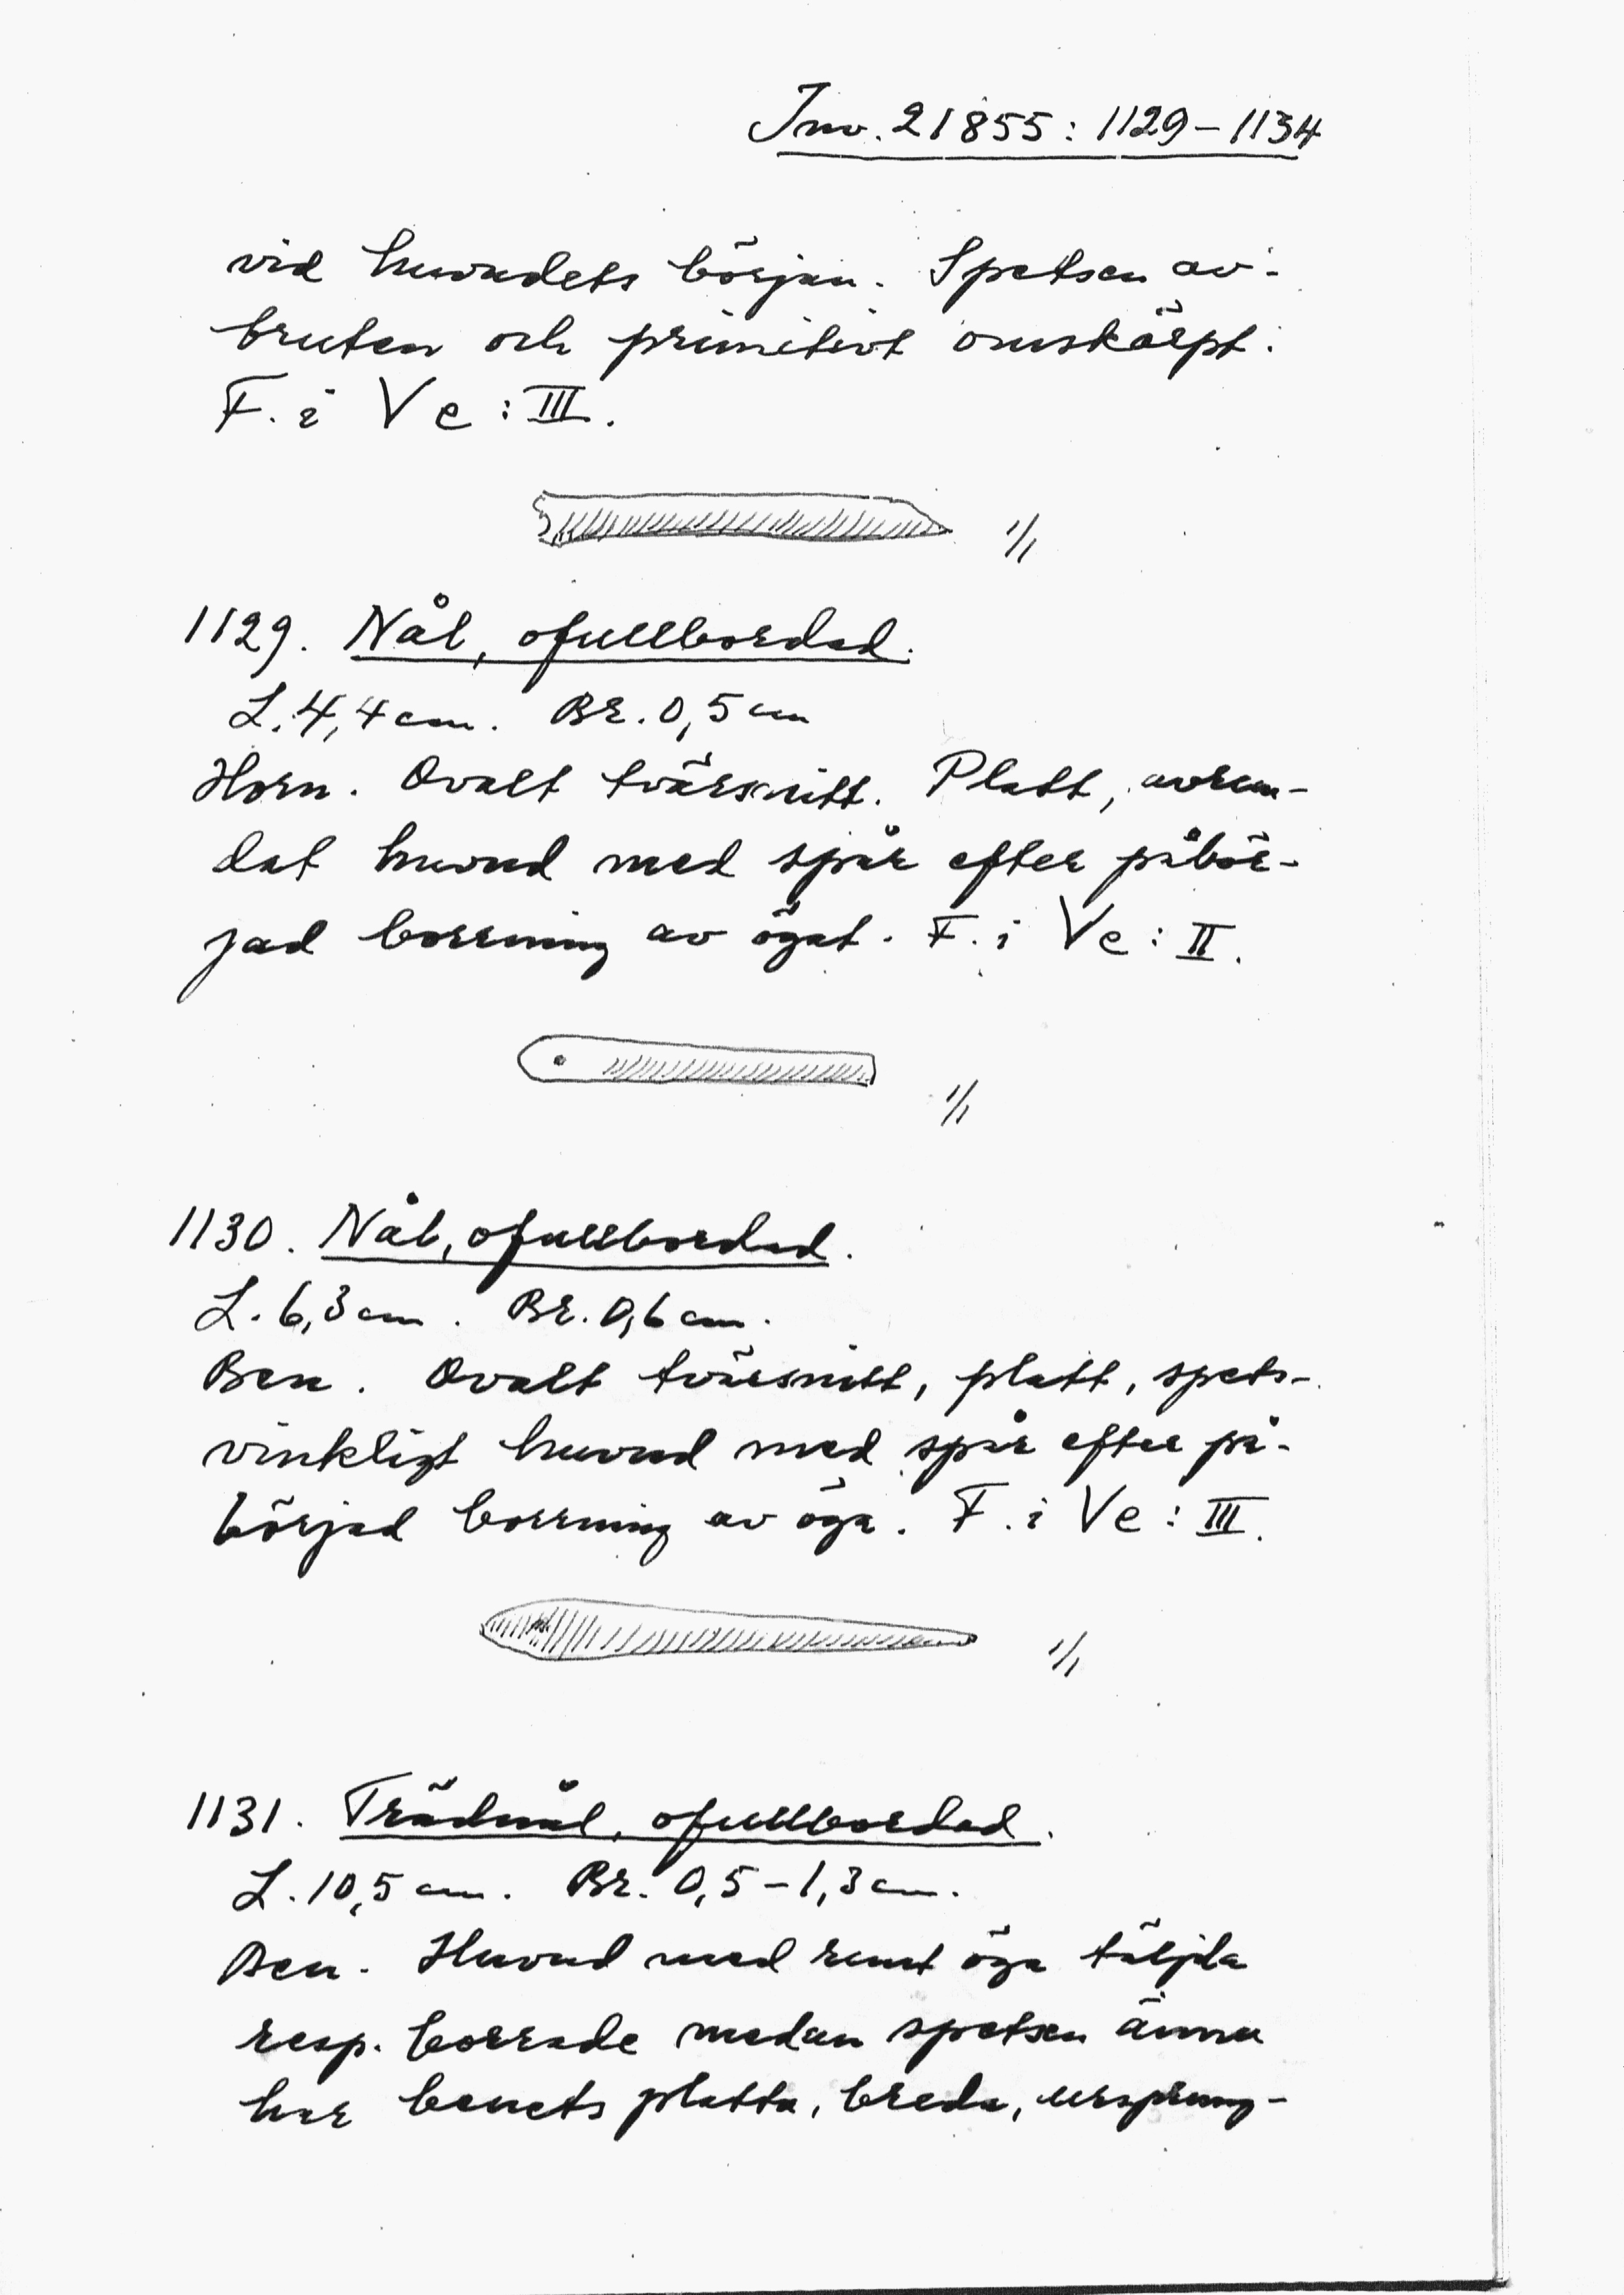 Inv. 21855: 1129-1134
vid huvudets början. Spetsen av-
bruten och primitivt omskärpt.
F. i Ve: III.
1/1
1129. Nål, ofullbordad.
L. 4,4 cm. Br. 0,5 cm
Horn. Ovalt tvärsnitt. Platt, avrun-
dat huvud med spår efter påbör-
jad borrning av ögat. F. i Ve: II.
1/1
1130. Nål, ofullbordad.
L. 6,3 cm. Br. 0,6 cm.
Ben. Ovalt tvärsnitt, platt, spets-
vinkligt huvud med spår efter på-
börjad borrning av öga. F. i Ve: III.
1/1
1131. Trädnål, ofullbordad.
L. 10,5 cm. Br. 0,5-1,3 cm.
Ben. Huvud med runt öga täljda
resp. borrade medan spetsen ännu
har benets platta, breda, ursprung-